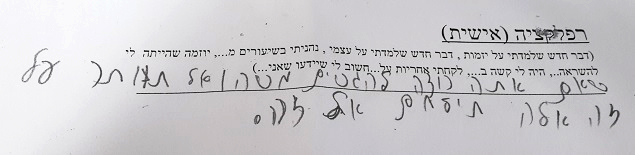 רפלקציה (אישית)
(דבר חדש שלמדתי על יזמות , דבר חדש שלמדתי על עצמי , נהניתי בשיעורים מ..., יוזמה שהייתה לי
להשראה.., היה לי קשה ב..., לקחתי אחריות על...חשוב לי שיידעו שאני...)
אתה רוצה להגשים משהו אל תוותר על
זה אלא תיעזר אל